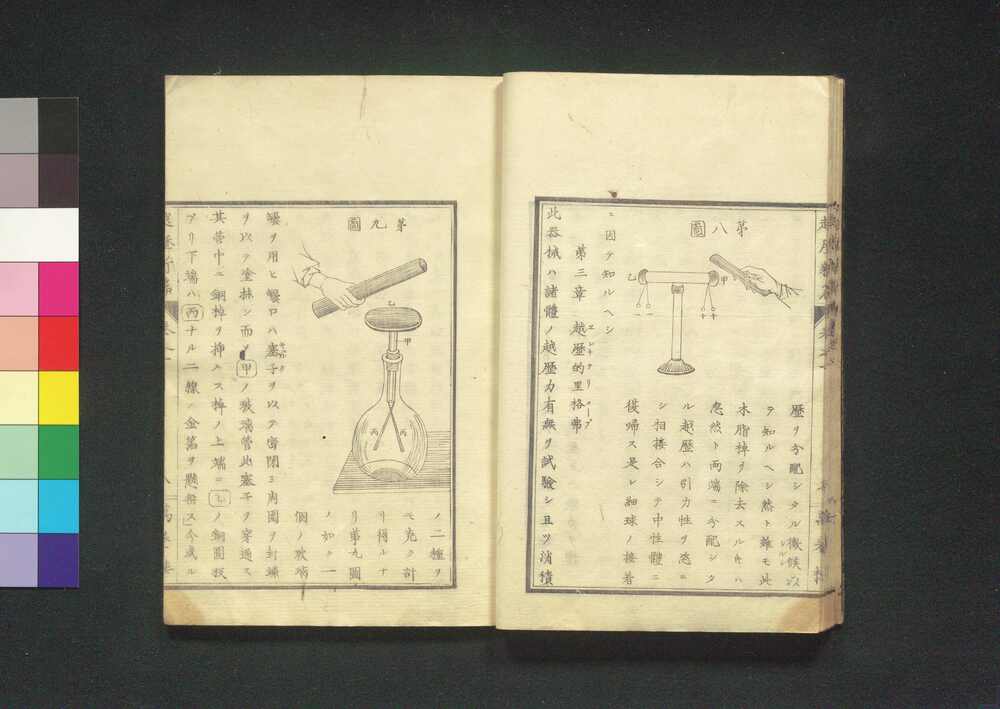 第八圖
乙
甲
歴リ分配シタル徴候ゾ
テ知ルヘシ然ト雖モ此
木脂棹ヲ除去スルキハ
忽然ト両端ニ分配シタ
ル越歴ハ引力性ヲ恣ニ
シ相接合シテ中性體ニ
復帰ス是レ細球ノ接着
ニ因テ知ルヘシ
第三章 越歴的里格弗
此器械ハ諸體ノ越歴力有無リ試驗シ且ツ消積
第九圖
乙
甲
丙
丙
ノ二種ヲ
モ克ク計
リ得ルナ
リ第九圖
ノ如ク一
個ノ玻璃
罎ヲ用ヒ罎口ハ塞子ヲ以テ密閉ヨ周圍ヲ封蝋
ヲ以テ塗抹シ而メ甲ノ玻璃管此塞子ヲ穿通ス
其管中ニ銅棹ヲ挿入ス棹ノ上端ニ乙ノ銅圓板
アリ下端ハ丙ナル二線ノ金箔ヲ懸垂ス今或ル